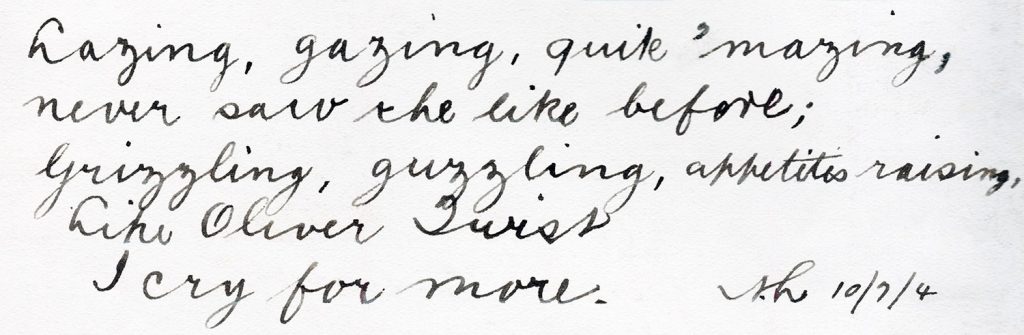 Lazing, gazing, quite 'mazing,
never saw the like before;
Grizzling, guzzling, appetites raising,
Like Oliver Twist
I cry for more. 10/7/4